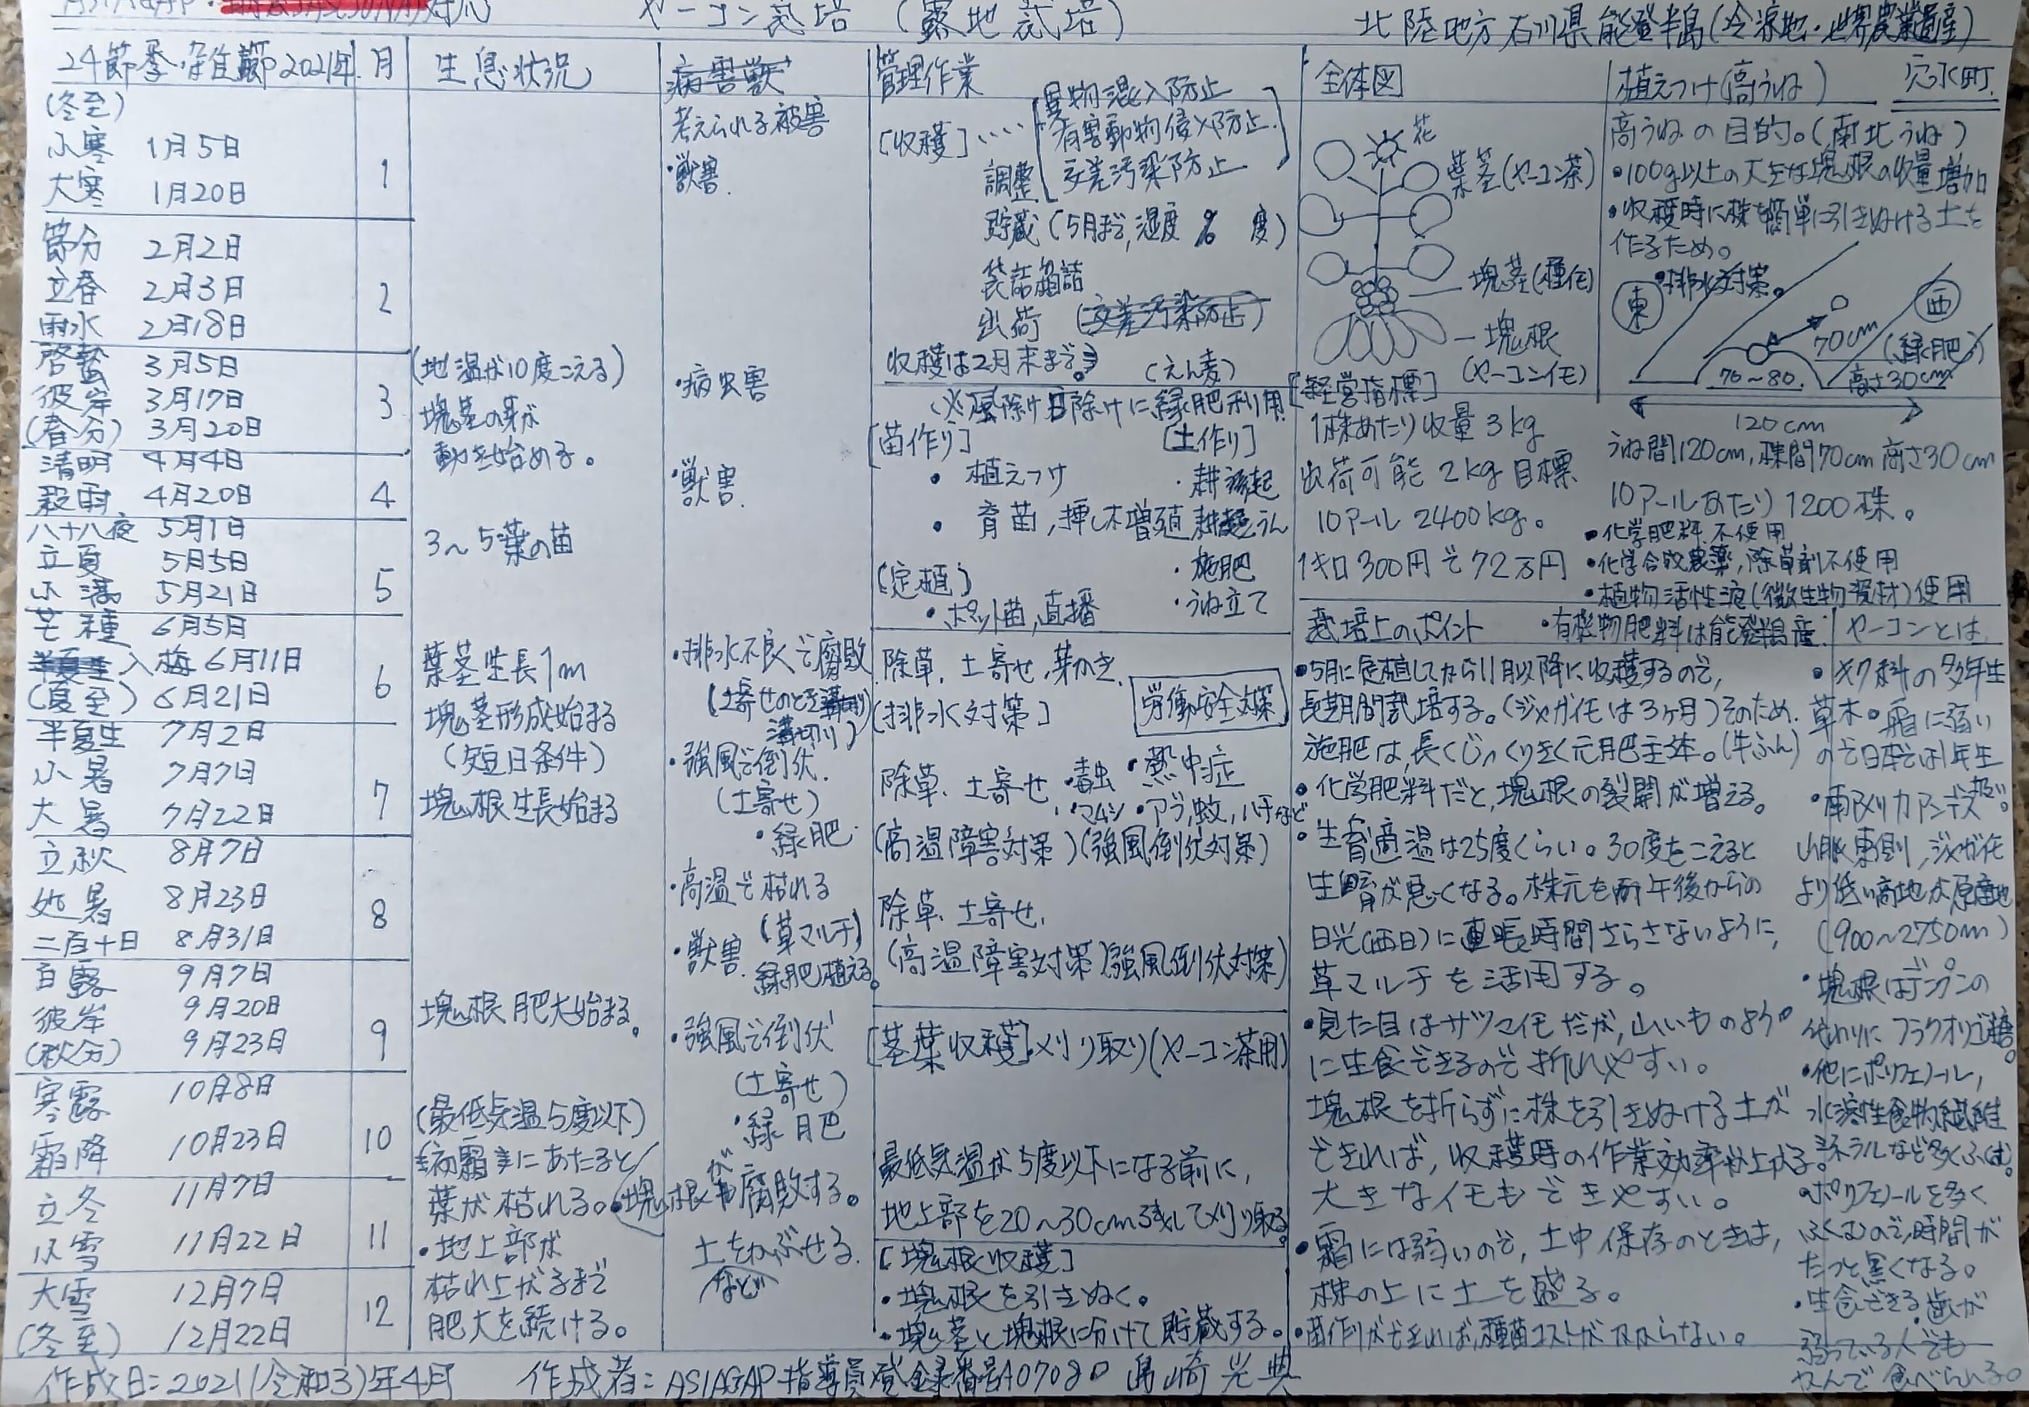 ヤーコン栽培 (露地栽培)
北陸地方石川県能登半島(冷涼地・世界農業遺産)
穴水町
24節季・雑節 2021年
(冬至)
小寒 1月5日
大寒 1月20日
節分 2月2日
立春 2月3日
雨水 2月18日
啓蟄 3月5日
彼岸 3月17日
(春分) 3月20日
清明 4月4日
穀雨 4月20日
八十八夜 5月1日
立夏 5月5日
小満 5月21日
芒種 6月5日
入梅 6月11日
(夏至) 6月21日
半夏生 7月2日
小暑 7月7日
大暑 7月22日
立秋 8月7日
処暑 8月23日
二百十日 8月31日
白露 9月7日
彼岸 9月20日
(秋分) 9月23日
寒露 10月8日
霜降 10月23日
立冬 11月7日
小雪 11月22日
大雪 12月7日
(冬至) 12月22日
月
1
2
3
4
5
6
7
8
9
10
11
12
生息状況
(地温が10度こえる)
塊茎の芽が
動き始める。
3〜5葉の苗
葉茎生長1m
塊茎形成始まる
(短日条件)
塊根生長始まる
塊根肥大始まる。
(最低気温5度以下)
霜にあたると
葉が枯れる。
・地上部が
枯れ上がるまで
肥大を続ける。
病害獣
考えられる被害
・獣害
・病虫害
・獣害
・排水不良で腐敗
(土寄せのとき
溝切り)
・強風で倒伏
(土寄せ)
・緑肥
・高温で枯れる
(草マルチ)
・獣害
緑肥植える。
・強風で倒伏
(土寄せ)
・緑肥
・塊根が腐敗する。
土をかぶせる
など
管理作業
[収穫]‥‥
異物混入防止
有害動物侵入防止
交差汚染防止
調整
貯蔵(5月まで,湿度 % 度)
袋詰箱詰
出荷 (交差汚染防止)
収穫は2月末まで。
(えん麦)
(※風除け日除けに緑肥利用
[苗作り]
・植えつけ
・育苗,挿し木増殖
[土作り]
・耕起
・施肥
・うね立て
(定植)
・ポット苗,直播
除草,土寄せ,芽かき,
(排水対策)
労働安全対策
除草,土寄せ
・毒虫 ・熱中症
・マムシ・アブ,蚊,ハチなど
(高温障害対策)(強風倒伏対策)
除草,土寄せ,
(高温障害対策)(強風倒伏対策)
[茎葉収穫]刈り取り(ヤーコン茶用)
最低気温が5度以下になる前に,
地上部を20〜30cm残して刈り取る。
[塊根収穫]
・塊根を引きぬく。
・塊茎と塊根に分けて貯蔵する。
全体図
花
葉茎(ヤーコン茶)
塊茎(種芋)
塊根
(ヤーコンイモ)
[経営指標]
1株あたり収量3kg
出荷可能 2kg目標
10アール 2400kg。
1キロ300円で72万円
植えつけ(高うね)
高うねの目的。(南北うね)
・100g以上の大きな塊根の収量増加
・収穫時に株を簡単に引きぬける土を
作るため。
・排水対策。
東
西
(緑肥)
70cm
70〜80
高さ30cm
120cm
うね間120cm,株間70cm高さ30cm
10アールあたり1200株。
・化学肥料不使用
・化学合成農薬,除草剤不使用
・植物活性液(微生物資材)使用
・有機物肥料は能登半島産
栽培上のポイント
・5月に定植してから11月以降に収穫するので,
長期間栽培する。(ジャガイモは3ヶ月)そのため,
施肥は,長くじっくりきく元肥主体。(牛ふん)
・化学肥料だと,塊根の裂開が増える。
・生育適温は25度くらい。30度をこえると
生育が悪くなる。株元を午後からの
日光(西日)に長時間さらさないように,
草マルチを活用する。
・見た目はサツマイモだが,山いものよう
に生食できるので折れやすい。
塊根を折らずに株を引きぬける土が
できれば,収穫時の作業効率が上がる。
大きなイモもできやすい。
・霜には弱いので,土中保存のときは,
株の上に土を盛る。
・苗作りができれば,種苗コストがかからない。
ヤーコンとは
・キク科の多年生
草本。霜に弱い
ので日本では1年生
・南アメリカアンデス
山脈東側,ジャガイモ
より低い高地が原産地
(900〜2750m)。
・塊根はデンプンの
代わりにフラクトオリゴ糖。
・他にポリフェノール,
水溶性食物繊維
ミネラルなど多くふくむ。
・ポリフェノールを多く
ふくむので,時間が
たつと黒くなる。
・生食できる。歯が
弱っている人でも
かんで食べられる。
作成日:2021(令和3)年4月 作成者:ASIAGAP指導員登録番号A07080 島崎光典